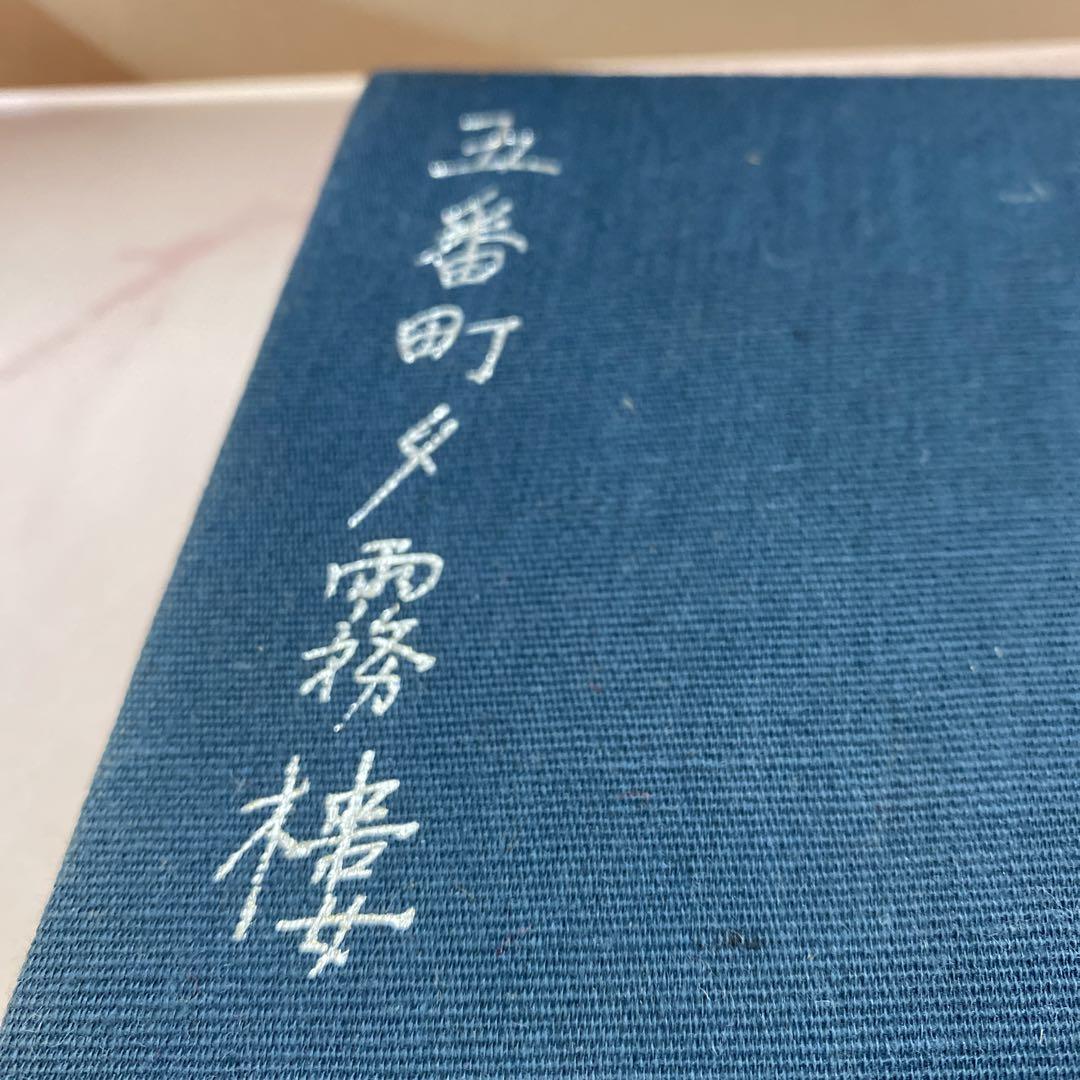 五番町夕霧樓